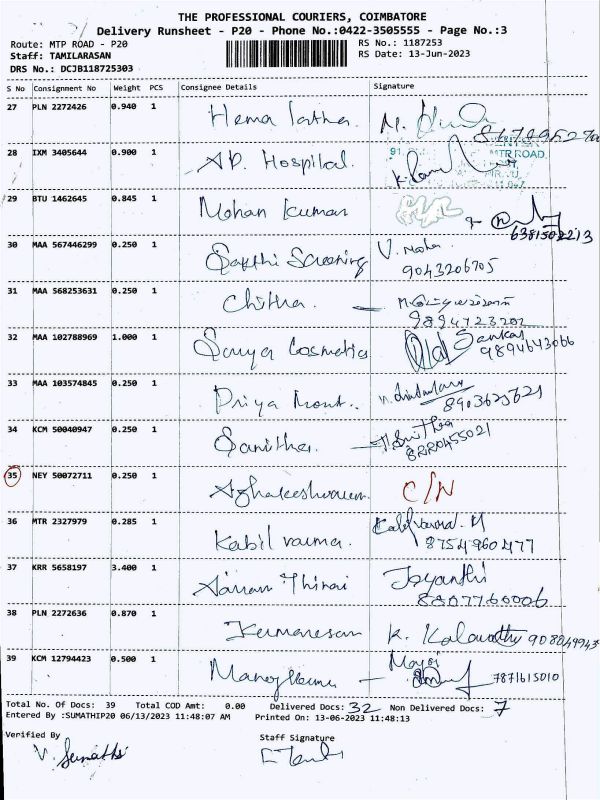 THE PROFESSIONAL COURIERS, COIMBATORE
Delivery Runsheet - P20 - Phone No.:0422-3505555 - Page No.:3
Route: MTP ROAD - P20 RS No.: 1187253
Staff: TAMILARASAN RS Date: 13-Jun-2023
DRS No.: DCJB118725303
S No Consignment No Weight PCS Consignee Details Signature
27 PLN 2272426 0.940 1 Hema latha.
28 IXM 3405644 0.900 1 AP Hospital.
MTR ROAD
29 BTU 1462645 0.845 1 Mohan kumar
6381502213
30 MAA 567446299 0.250 1 Sakthi Screening V. Mala
9043206705
31 MAA 568253631 0.250 1 Chitha.
9894723202
32 MAA 102788969 1.000 1 Sanya Cosmetics Sankar
9894643066
33 MAA 103574845 0.250 1 Priya Mont.
8903625621
34 KCM 50040947 0.250 1 Sanitha.
8220455021
35 NEY 50072711 0.250 1 C/N
36 MTR 2327979 0.285 1 Kabil varma.
8754960477
37 KRR 5658197 3.400 1 Aanan Thinai Jayanthi
8807760006
38 PLN 2272636 0.870 1 Kumaresan K. Kalavathy 908849943
39 KCM 12794423 0.500 1 Manoj kumar Manoj
7871615010
Total No. Of Docs: 39 Total COD Amt: 0.00 Delivered Docs: 32 Non Delivered Docs: 7
Entered By :SUMATHIP20 06/13/2023 11:48:07 AM Printed On: 13-06-2023 11:48:13
Verified By Staff Signature
V. Sumathi